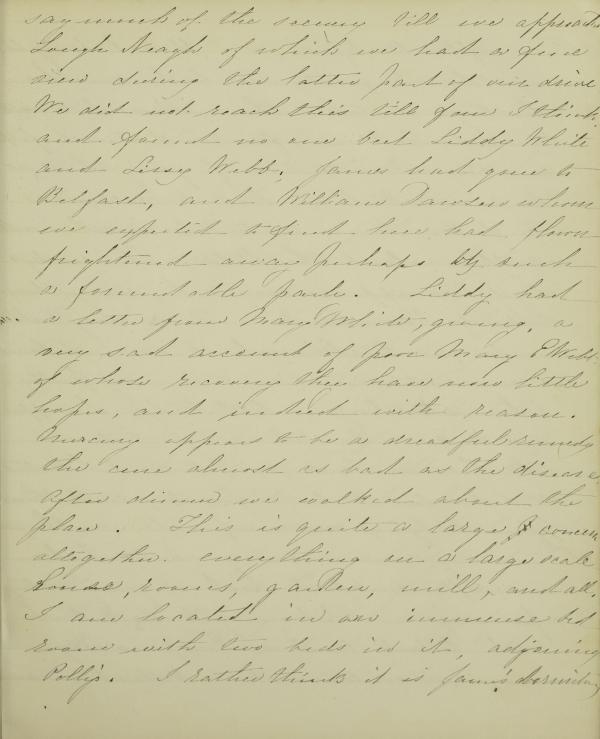 say much of the scenery till we approach
Lough Neagh of which we had a fine
view during the latter part of our drive
We did not reach this till four I think,
and found no one but Liddy White
and Lissy Webb, James had gone to
Belfast, and William Dawson whom
we expected to find here had flown
frightened away perhaps by such
a formidable party. Liddy had
a letter from Mary White, giving, a
very sad account of poor Mary E Webb
of whose recovery they have now little
hopes, and indeed with reason.
Mercury appears to be a dreadful remedy
the cure almost as bad as the disease,
After dinner we walked about the
place. This is quite a large concern
altogether. everything on a large scale
house, rooms, garden, mill, and all.
I am located in an immense bed
room with two beds in it, adjoining
Polly's. I rather think it is James' dormitory